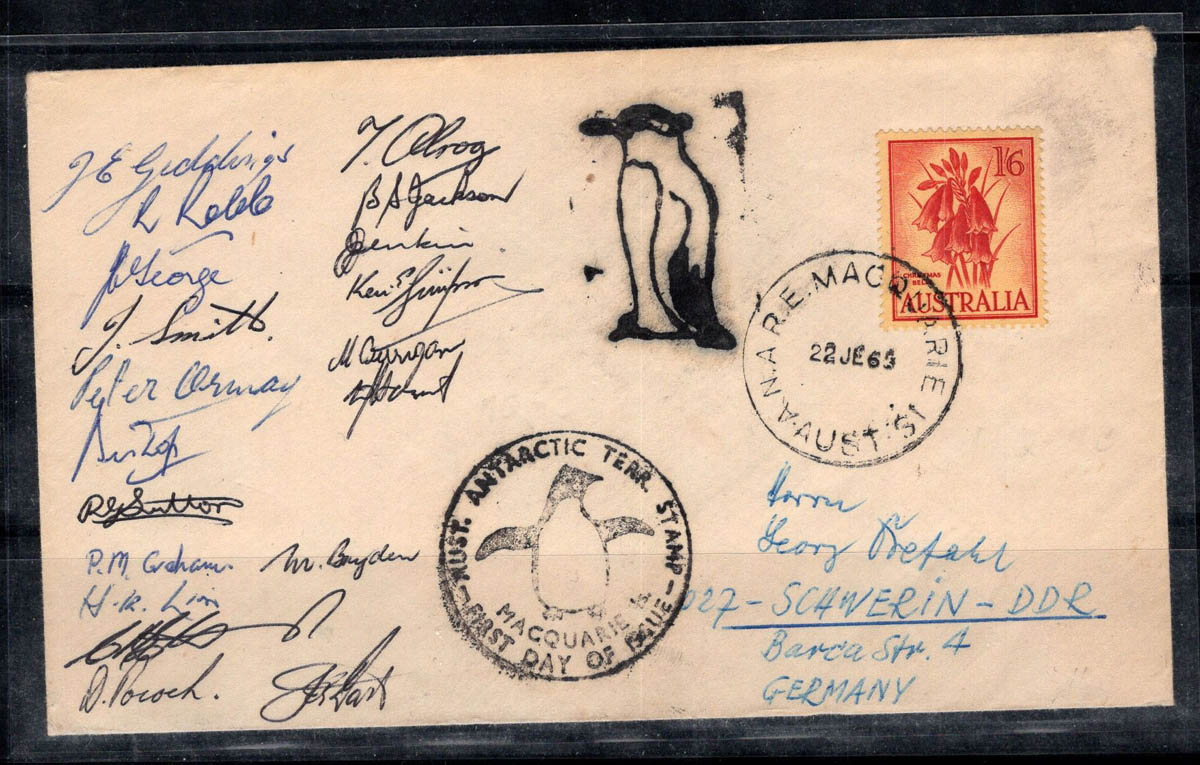 J E Giddings
R Kolele
George
J. Smith.
Peter Ormay
Bishop
R G Sutton
P.M. Graham.
H.R. Lim
D. Pocock.
J. Olrog
B A Jackson
Jenkin
Ken E Simpson
M Corrigan
M. Bryden
1/6
CHRISTMAS BELLS
AUSTRALIA
A.N.A.R.E. MACQUARIE IS.
22 JE 65
AUST.
AUST. ANTARCTIC TERR. STAMP
MACQUARIE IS
FIRST DAY OF ISSUE
Herrn
Georg Prefahl
027 - SCHWERIN - DDR
Barca Str. 4
GERMANY